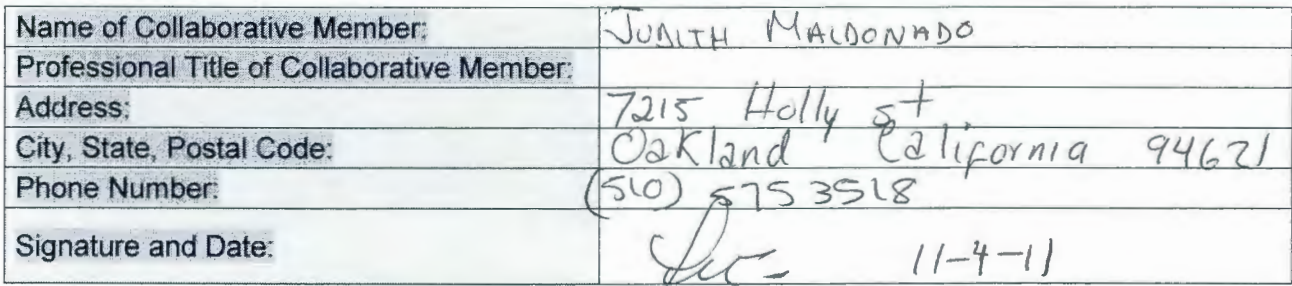 Name of Collaborative Member: JUDITH MALDONADO
Professional Title of Collaborative Member:
Address: 7215 Holly st.
City, State, Postal Code: Oakland California 94621
Phone Number: (510) 575 3518
Signature and Date: 11-4-11